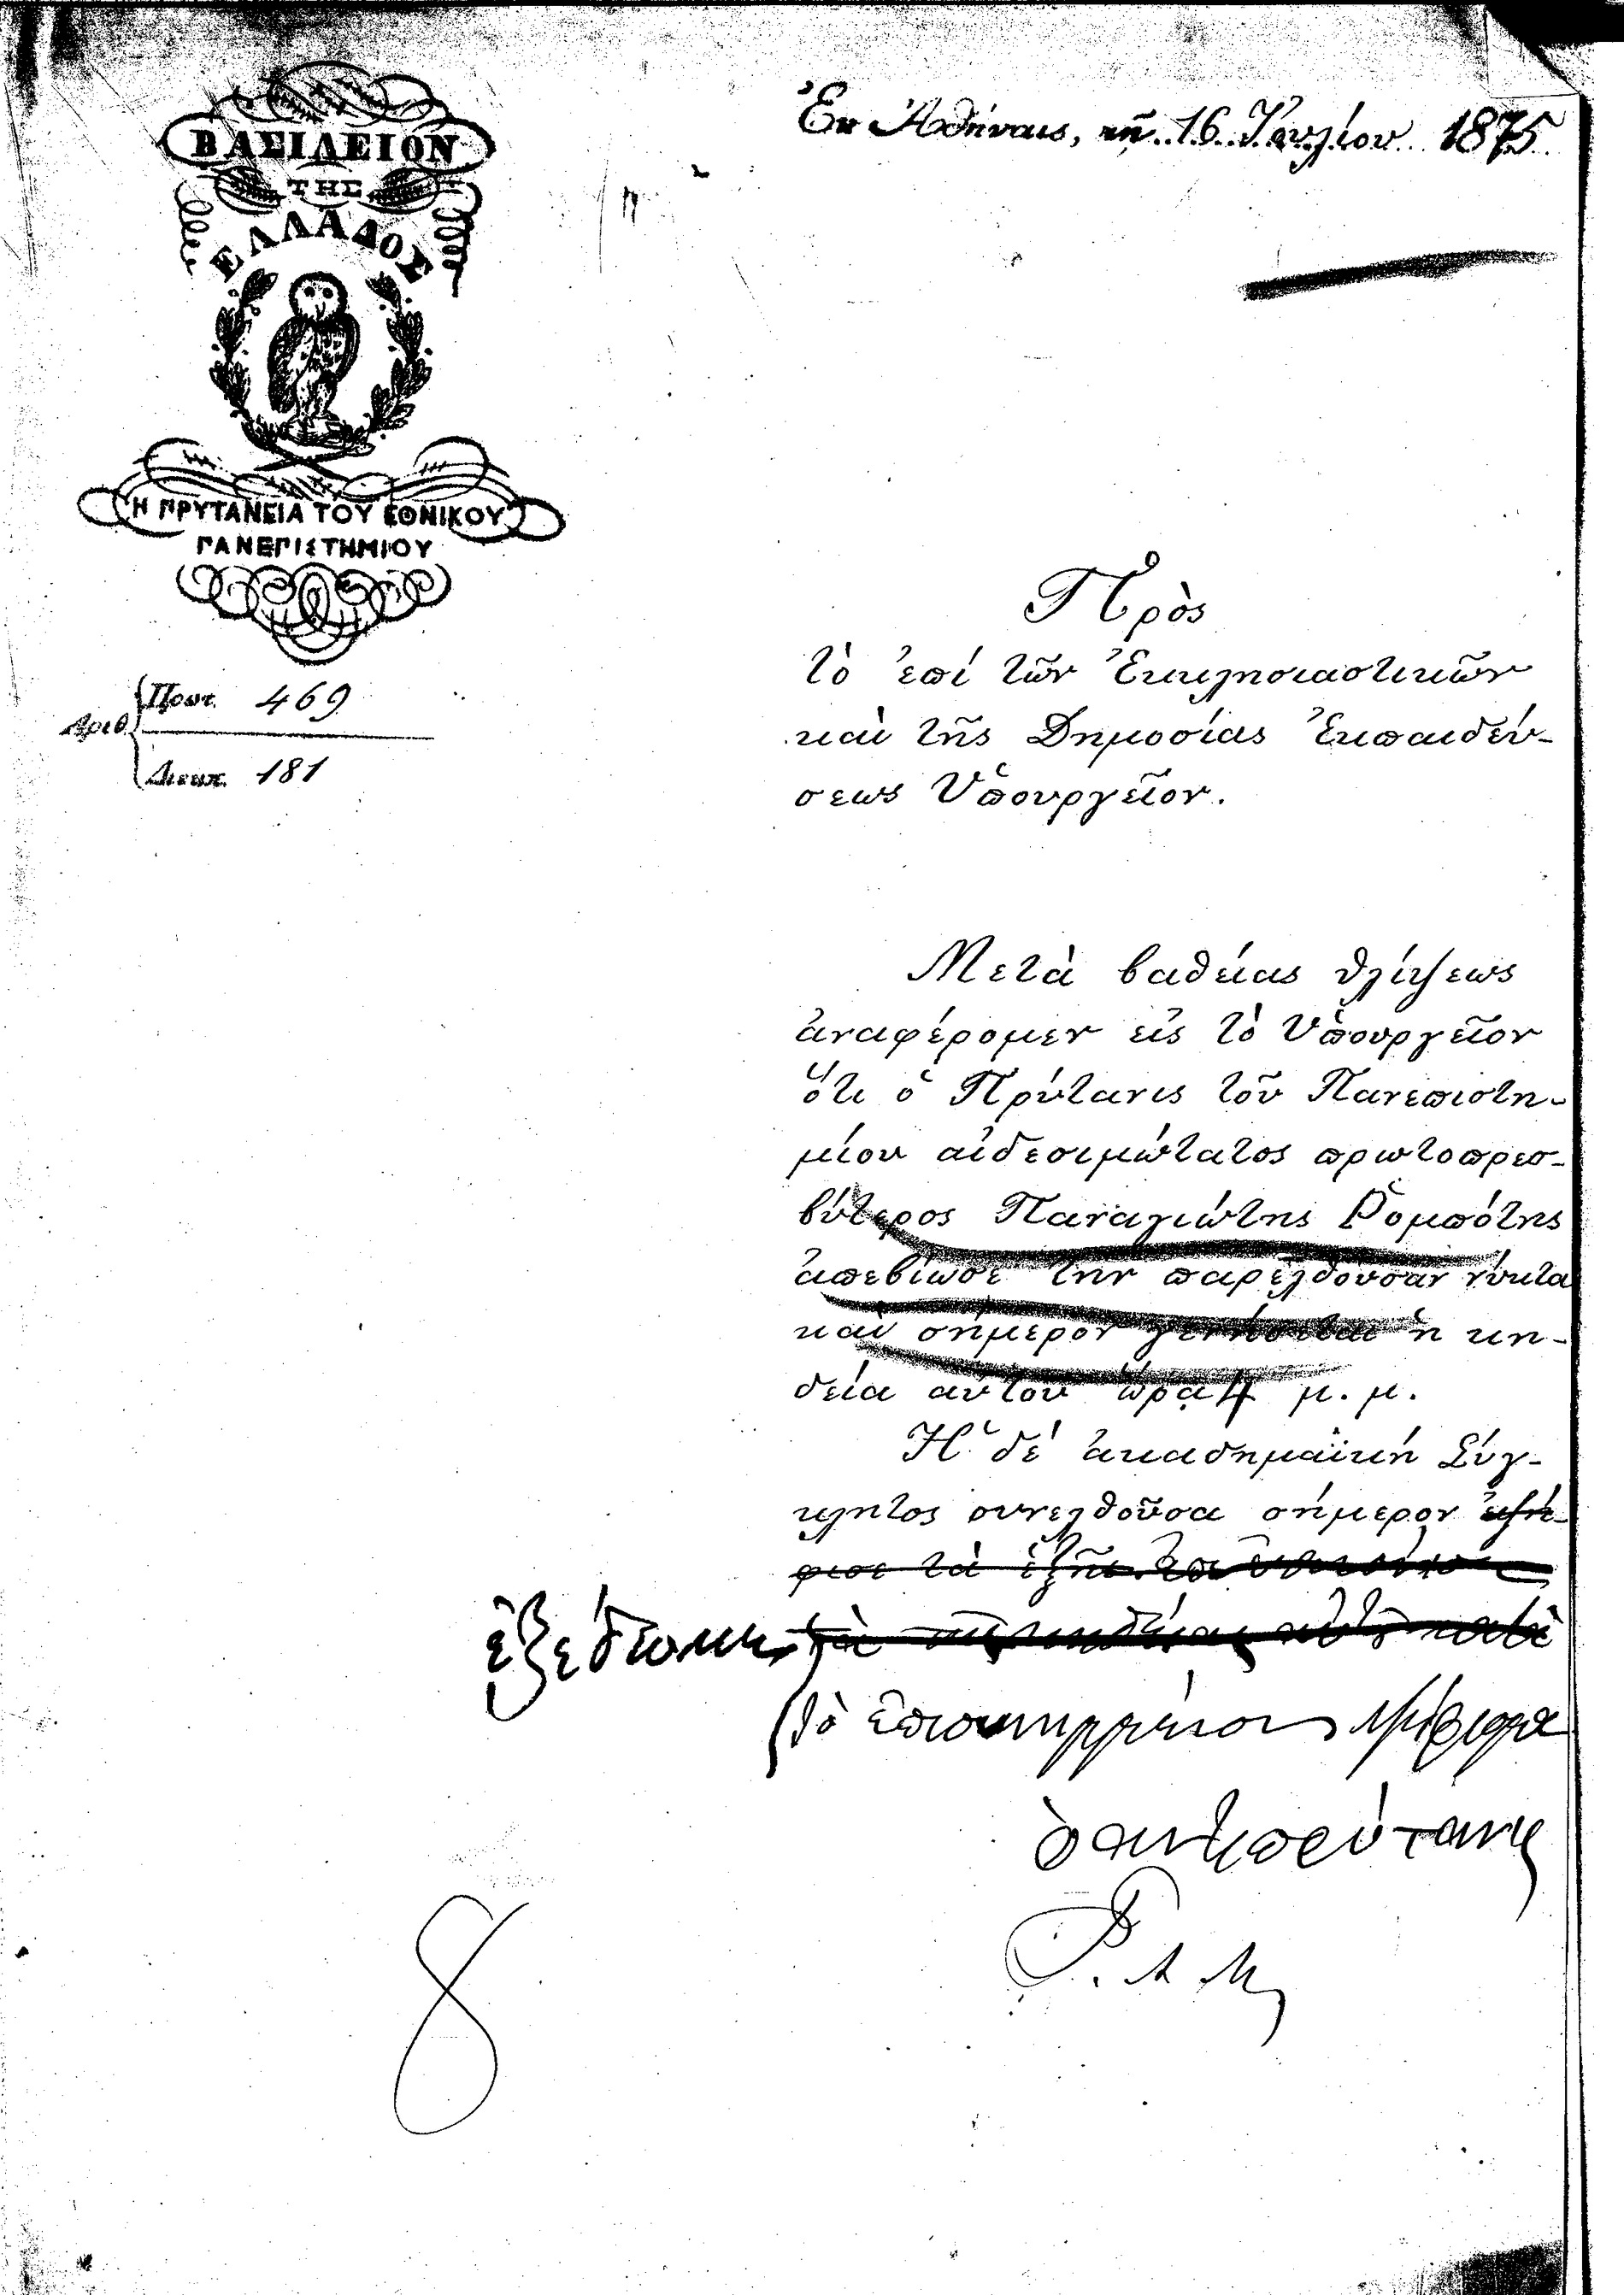 ΒΑΣΙΛΕΙΟΝ
ΤΗΣ
ΕΛΛΑΔΟΣ
Η ΠΡΥΤΑΝΕΙΑ ΤΟΥ ΕΘΝΙΚΟΥ
ΠΑΝΕΠΙΣΤΗΜΙΟΥ
Ἀριθ.
Πρωτ. 469
Διεκπ. 181
Ἐν Ἀθήναις, τῇ 16 Ἰουλίου 1875
Πρὸς
τὸ ἐπί τῶν Ἐκκλησιαστικῶν
καὶ τῆς Δημοσίας Ἐκπαιδεύ-
σεως Ὑπουργεῖον.
Μετὰ βαθείας θλίψεως
ἀναφέρομεν εἰς τὸ Ὑπουργεῖον
ὅτι ὁ Πρύτανις τοῦ Πανεπιστη-
μίου αἰδεσιμώτατος πρωτοπρεσ-
βύτερος Παναγιώτης Ῥομπότης
ἀπεβίωσε τὴν παρελθοῦσαν νύκτα
καὶ σήμερον γενήσεται ἡ κη-
δεία αὐτοῦ ὥρᾳ 4 μ. μ.
Ἡ δὲ ἀκαδημαϊκὴ Σύγ-
κλητος συνελθοῦσα σήμερον ἐψή-
φισε τὰ ἑξῆς
ἐξέδωκε
τὸ ἐπισυνημμένον ψήφισμα
ὁ ἀντιπρύτανις
8